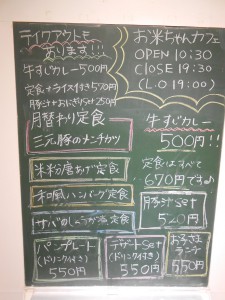 テイクアウトも
あります!!!
牛すじカレー500円
定食+ライス付き570円
豚汁+おにぎりset250円
月替わり定食
三元豚のメンチカツ
米粉唐あげ定食
和風ハンバーグ定食
サバのしょうが煮定食
お米ちゃんカフェ
OPEN 10:30
CLOSE 19:30
(L.O 19:00)
牛すじカレー
500円!!
定食はすべて
670円です♪
豚汁set
520円
パンプレート
(ドリンク付き)
550円
デザートset
(ドリンク付き)
550円
お子さま
ランチ
550円